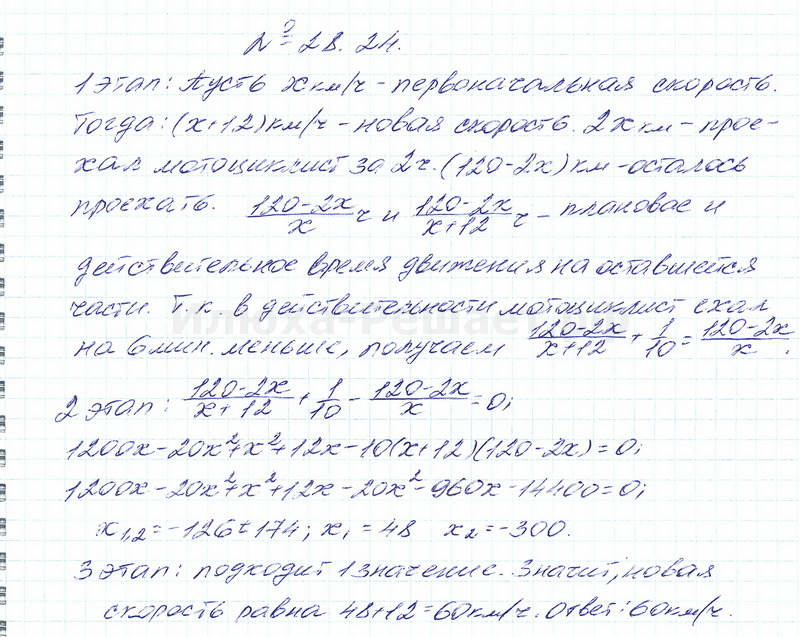 № 28.24.
1 этап: Пусть x км/ч - первоначальная скорость.
Тогда: (x+12) км/ч - новая скорость. 2x км - прое-
хал мотоциклист за 2ч. (120-2x) км - осталось
проехать. (120-2x)/x ч и (120-2x)/(x+12) ч - плановое и
действительное время движения на оставшейся
части. Т.к. в действительности мотоциклист ехал
на 6 мин. меньше, получаем (120-2x)/(x+12) + 1/10 = (120-2x)/x.
2 этап: (120-2x)/(x+12) + 1/10 - (120-2x)/x = 0;
1200x - 20x² + x² + 12x - 10(x+12)(120-2x) = 0;
1200x - 20x² + x² + 12x - 20x² - 960x - 14400 = 0;
x₁,₂ = -126 ± 174; x₁ = 48 x₂ = -300.
3 этап: подходит 1 значение. Значит, новая
скорость равна 48+12=60 км/ч. Ответ: 60 км/ч.